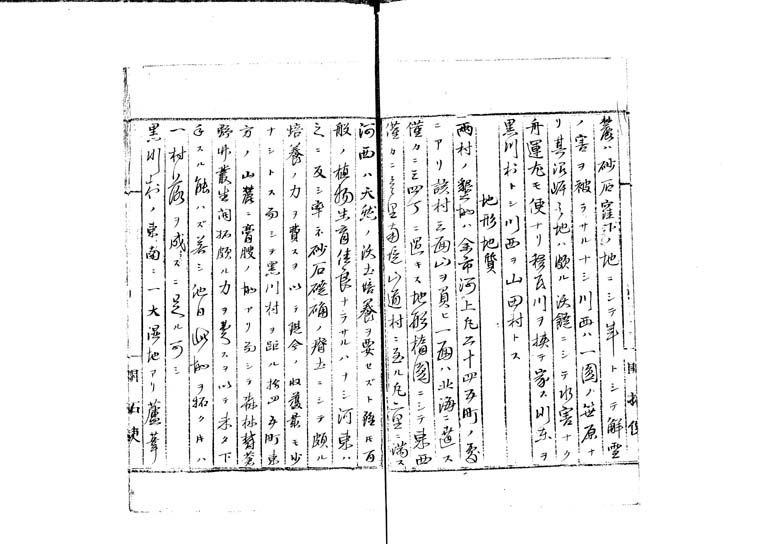 麓ハ砂石窪汙ノ地ニシテ年トシテ解雪
ノ害ヲ被ラサルナシ川西ハ一圓ノ笹原ナ
リ其沿岸ノ地ハ頗ル沃饒ニシテ水害ナク
舟運尤モ便ナリ 川ヲ挟テ家ス川東ヲ
黒川村トシ川西ヲ山田村トス
地形地質
両村ノ墾地ハ余市河上凡二十四五町ノ處
ニアリ該村三面山ヲ負ヒ一面ハ北海ニ臨ス
僅カニ三四丁ニ過キス地形楕圓ニシテ東西
僅カニ 里南 山道村ニ至ル凡二里ニ満ス
河西ハ天然ノ沃土培養ヲ要セズト雖モ百
般ノ植物生育佳良ナラサルハナシ河東ハ
之ニ反シ率ネ砂石磽确ノ瘠土ニシテ頗ル
培養ノ力ヲ費スヲ以テ現今ノ収獲最モ少
ナシトス而シテ黒川村ヲ距ル拾四五町東
方ノ山麓ニ膏腴ノ地アリ而シテ森林鬱蒼
野艸叢生開拓頗ル力ヲ費スヲ以テ未タ下
手スル能ハズ若シ他日此地ヲ拓クトキハ
一村落ヲ成スニ足ル可シ
黒川村ノ東南ニ一大湿地アリ蘆葦
開拓使
開拓使